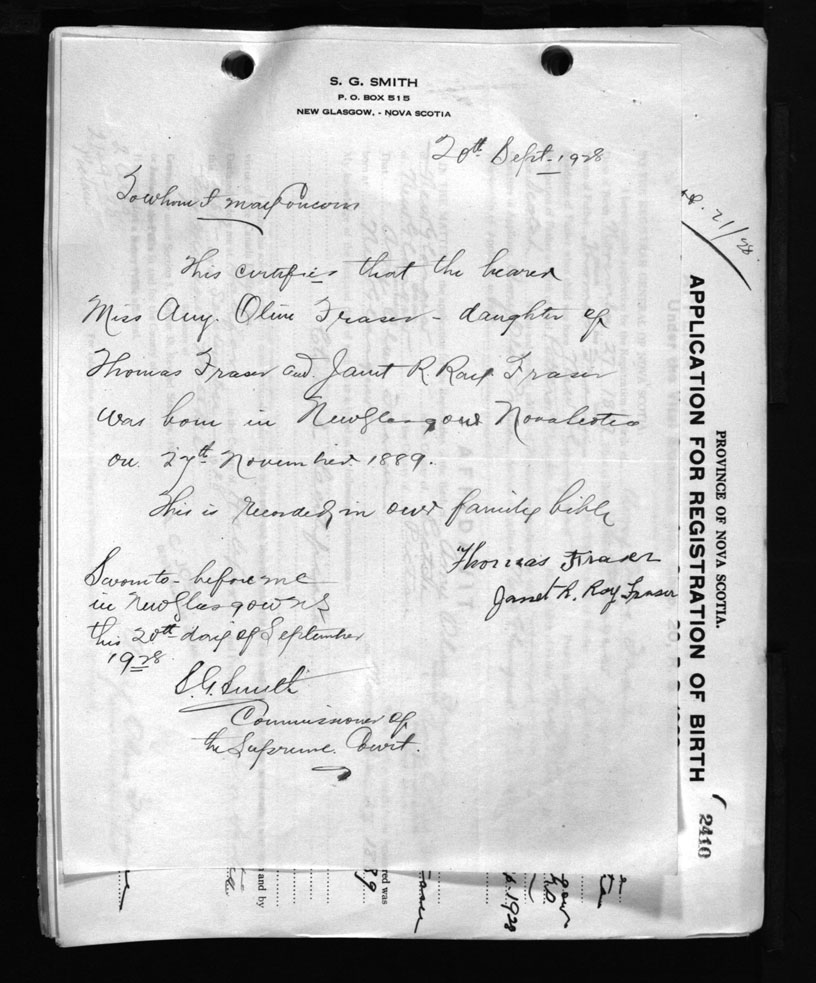 S. G. SMITH
P. O. BOX 515
NEW GLASGOW, - NOVA SCOTIA
20th Sept. 1928
To whom I may Concern
This certifies that the bearer
Miss Amy. Olive Fraser - daughter of
Thomas Fraser and Janet R. Roy Fraser
was born in New Glasgow Nova Scotia
on 27th November 1889.
This is recorded in our family bible
Thomas Fraser
Janet R. Roy Fraser
Sworn to - before me
in New Glasgow NS
this 20th day of September
1928
S.G. Smith
Commissioner of
the Supreme Court.
PROVINCE OF NOVA SCOTIA.
APPLICATION FOR REGISTRATION OF BIRTH
2410
21/28
and by
ered was
1928